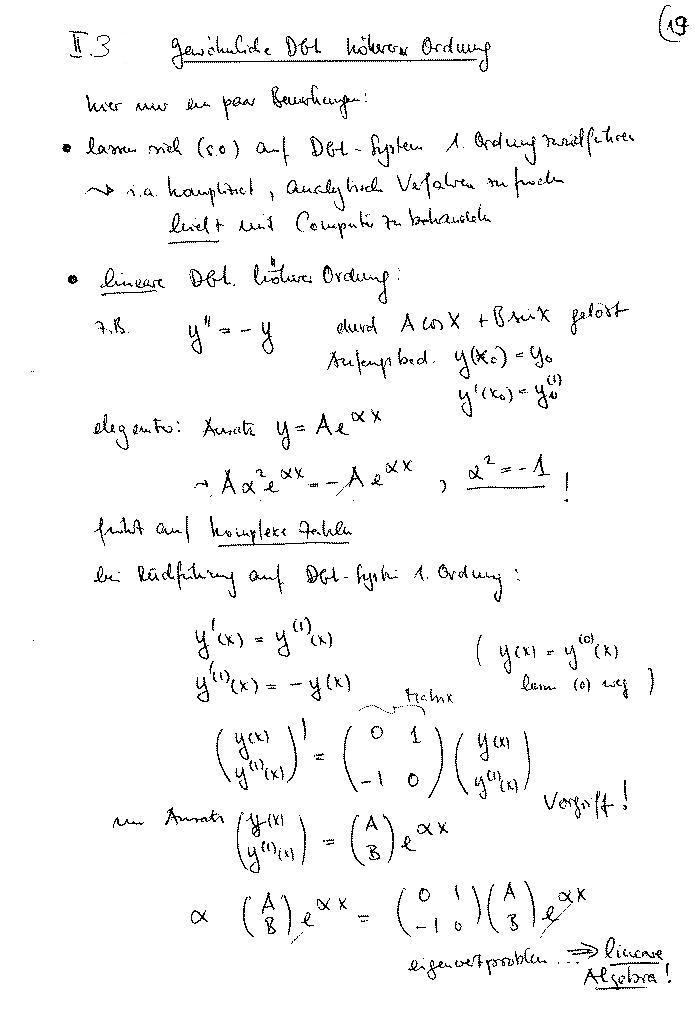 (19
II.3 Gewöhnliche Dgl höherer Ordnung
hier nur ein paar Bemerkungen:
• lassen sich (s.o) auf Dgl-System 1. Ordnung zurückführen
⇝ i.a. kompliziert, analytische Verfahren zu finden
leicht mit Computer zu behandeln
• lineare Dgl. höherer Ordnung:
z.B. y'' = -y durch A cos x + B sin x gelöst
Anfangsbed. y(x₀) = y₀
y'(x₀) = y₀⁽¹⁾
eleganter: Ansatz y = A e^{αx}
→ A α² e^{αx} = - A e^{αx} , α² = -1 !
führt auf komplexe Zahlen
bei Rückführung auf Dgl-System 1. Ordnung:
y'(x) = y⁽¹⁾(x) ( y(x) = y⁽⁰⁾(x)
y'⁽¹⁾(x) = - y(x) lasse (0) weg )
Matrix
(y(x) y⁽¹⁾(x))' = (0 1 -1 0) (y(x) y⁽¹⁾(x))
Vorgriff!
Ansatz (y(x) y⁽¹⁾(x)) = (A B) e^{αx}
α (A B) e^{αx} = (0 1 -1 0) (A B) e^{αx}
eigenwertproblem ... ⇒ lineare
Algebra!